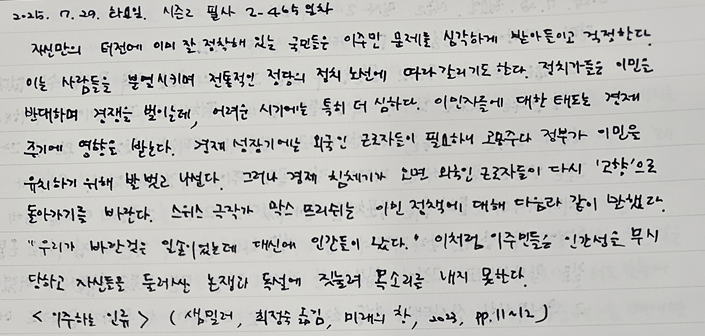 2025. 7. 29. 화요일. 시즌2 필사 2-465일차
자신만의 터전에 이미 잘 정착해 있는 국민들은 이주민 문제를 심각하게 받아들이고 걱정한다.
이는 사람들을 분열시키며 전통적인 정당의 정치 노선에 따라 갈리기도 한다. 정치가들은 이민을
반대하며 경쟁을 벌이는데, 어려운 시기에는 특히 더 심하다. 이민자들에 대한 태도는 경제
주기에 영향을 받는다. 경제 성장기에는 외국인 근로자들이 필요하니 고용주다 정부가 이민을
유치하기 위해 발 벗고 나선다. 그러나 경제 침체기가 오면 외국인 근로자들이 다시 '고향'으로
돌아가기를 바란다. 스위스 극작가 막스 프리쉬는 이민 정책에 대해 다음과 같이 말했다.
"우리가 바란 것은 일손이었는데 대신에 인간들이 왔다." 이처럼 이주민들은 인간성을 무시
당하고 자신들을 둘러싼 논쟁과 독설에 짓눌려 목소리를 내지 못한다.
< 이주하는 인류 > ( 샘 밀러, 최정숙 옮김, 미래의 창, 2023, pp.11~12 )